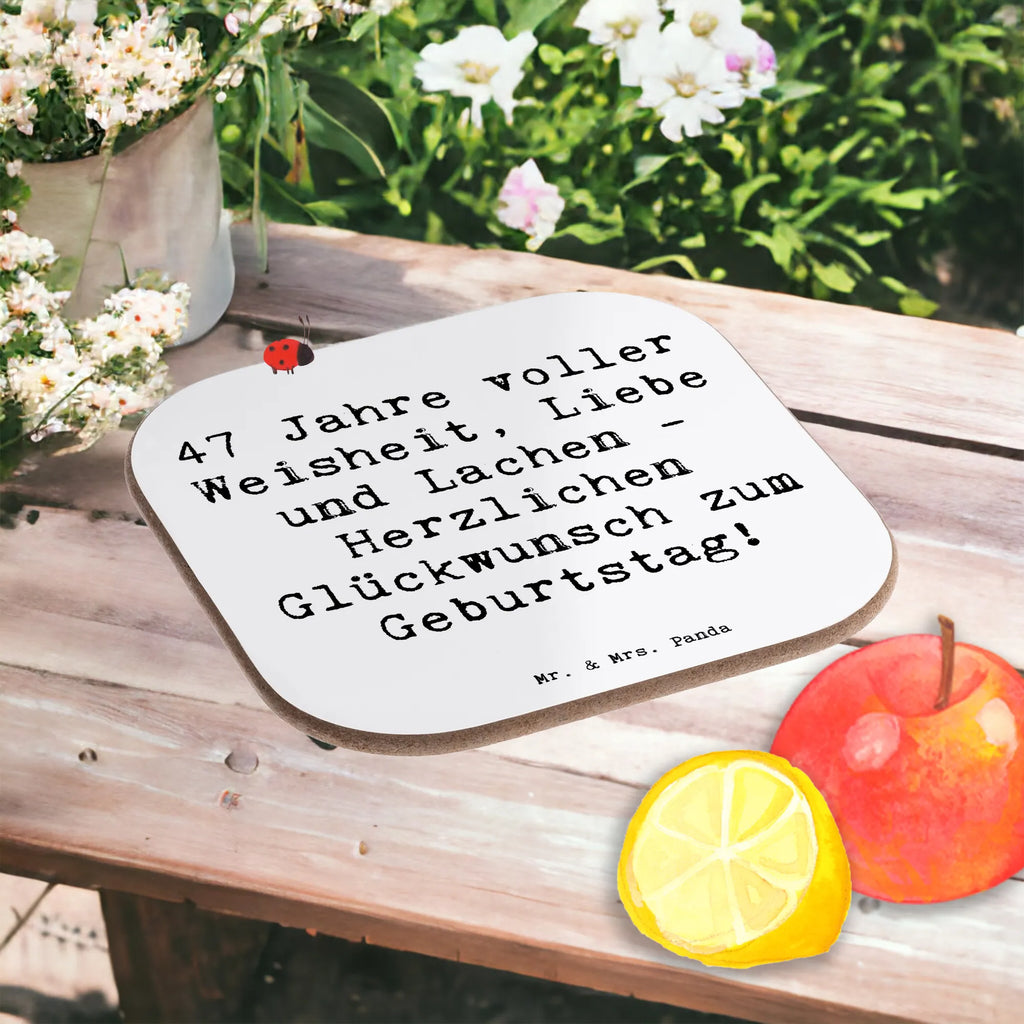 47 Jahre voller
Weisheit, Liebe
und Lachen -
Herzlichen
Glückwunsch zum
Geburtstag!
Mr. & Mrs. Panda